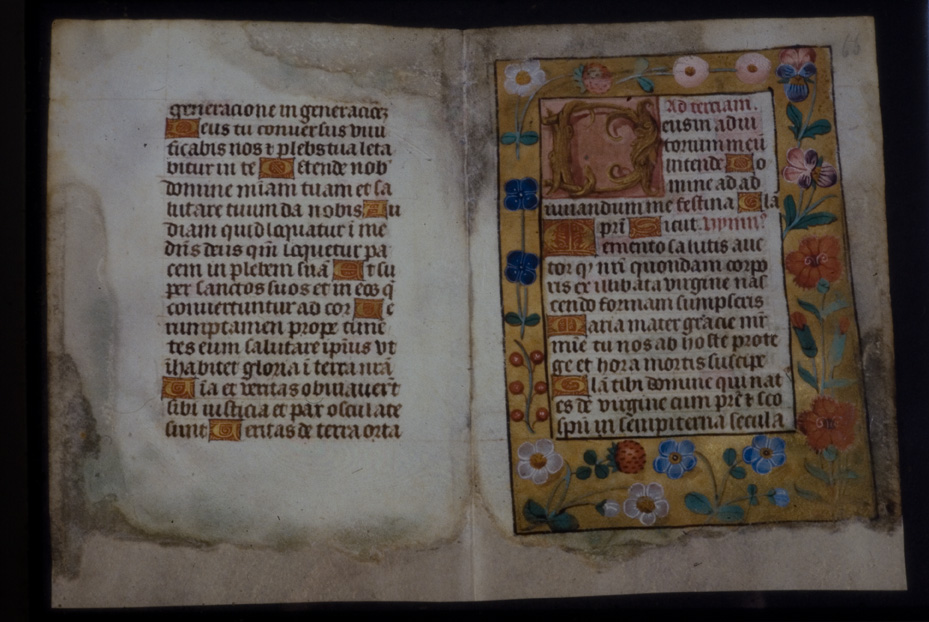 generacione in generacioēz
Deus tu conuersus viui
ficabis nos ⁊ plebs tua leta
bitur in te Ostende nob̄
domine mīam tuam et sa
lutare tuum da nobis Au
diam quid loquatur ī me
dn̄s deus qm̄ loquetur pa
cem in plebem suā Et su
per sanctos suos et in eos q̄
conuertuntur ad cor Ve
rumptamen prope timē
tes eum salutare ip̄ius vt
īhabitet gloria ī terra nrā
Mīa et veritas obuiauert̄
sibi iusticia et pax osculate
sunt Veritas de terra orta
Ad terciam.
Deus in adiu
torium meū
intende Do
mine ad ad
iuuandum me festina Glā
prī Sicut. hymn9
Memento salutis auc
tor qͥ nr̄i quondam corpo
ris ex illibata virgine nas
cendo formam sumpseris
Maria mater gracie mr̄
mīe tu nos ab hoste prote
ge et hora mortis suscipe
Glā tibi domine qui nat
es de virgine cum pr̄e ⁊ sco
spū in sempiterna secula